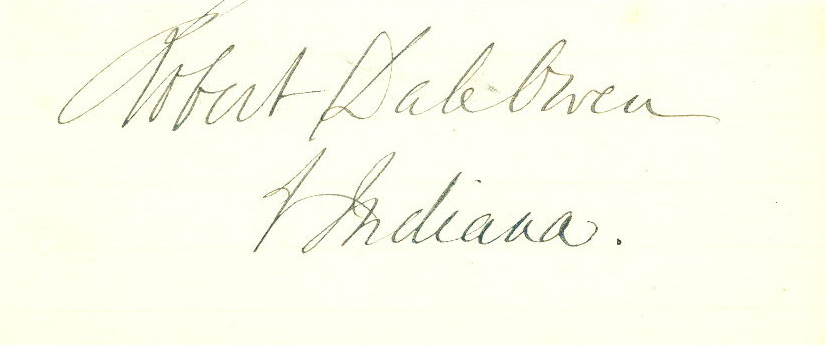 Robert Dale Owen
Indiana.